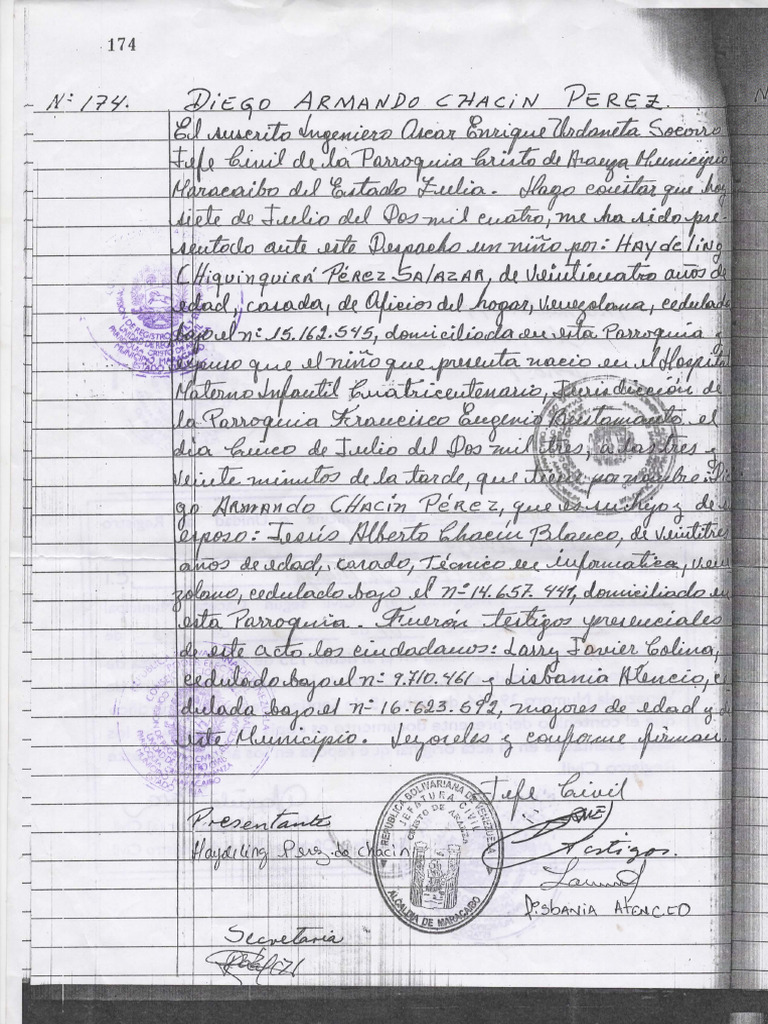 174
Nº 174. DIEGO ARMANDO CHACIN PEREZ.
El suscrito Ingeniero Oscar Enrique Urdaneta Socorro
Jefe Civil de la Parroquia Cristo de Aranza Municipio
Maracaibo del Estado Zulia. Hago constar que hoy
siete de Julio del Dos mil cuatro, me ha sido pre-
sentado ante este Despacho un niño por: HAYdeling
CHiquinquirá PÉREZ SALAZAR, de veinticuatro años de
edad, casada, de Oficios del hogar, venezolana, cedulada
bajo el nº 15.162.545, domiciliada en esta Parroquia y
expuso que el niño que presenta nacio en el Hospital
Materno Infantil Cuatricentenario, Jurisdicción de
la Parroquia Francisco Eugenio Bustamante el
día Cinco de Julio del Dos mil tres, a las tres y
veinte minutos de la tarde, que tiene por nombre: Die
go ARMANDO CHACIN PÉREZ, que es su hijo y de su
esposo: Jesús Alberto Chacin Blanco, de veintitres
años de edad, casado, Técnico en informatica, vene
zolano, cedulado bajo el nº 14.657.441, domiciliado en
esta Parroquia. Fuerón testigos presenciales
de este acto los ciudadanos: Larry Javier Colina,
cedulado bajo el nº 9.710.461 y Lisbania Atencio, ce
dulada bajo el nº 16.623.692, mayores de edad y de
este Municipio. Leyoseles y conforme firman.
Jefe Civil
Presentante
Haydeling Perez de Chacin
REPUBLICA BOLIVARIANA DE VENEZUELA
JEFATURA CIVIL
CRISTO DE ARANZA
ALCALDIA DE MARACAIBO
Testigos.
Lisbania Atencio
Secretaria